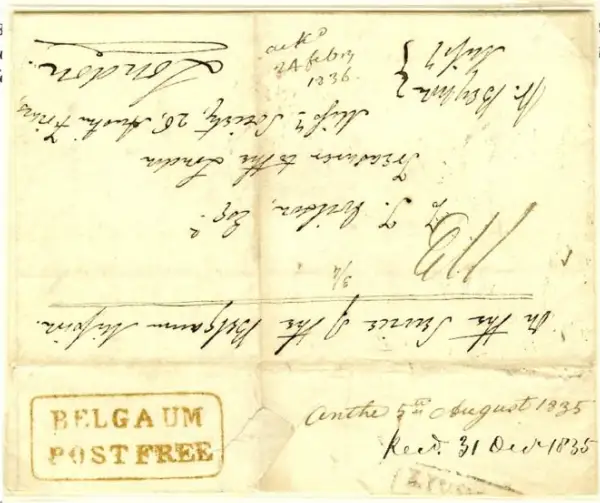 On the Service of the Belgaum Mission.
3/2
T. Wilson, Esqr.
Treasurer to the London
Missy. Society, 26, Austin Friars,
London.
W. Beynon
Missy.
ackd
24 feby
1836.
BELGAUM
POST FREE
5th August 1835
Recd. 31 Decr 1835